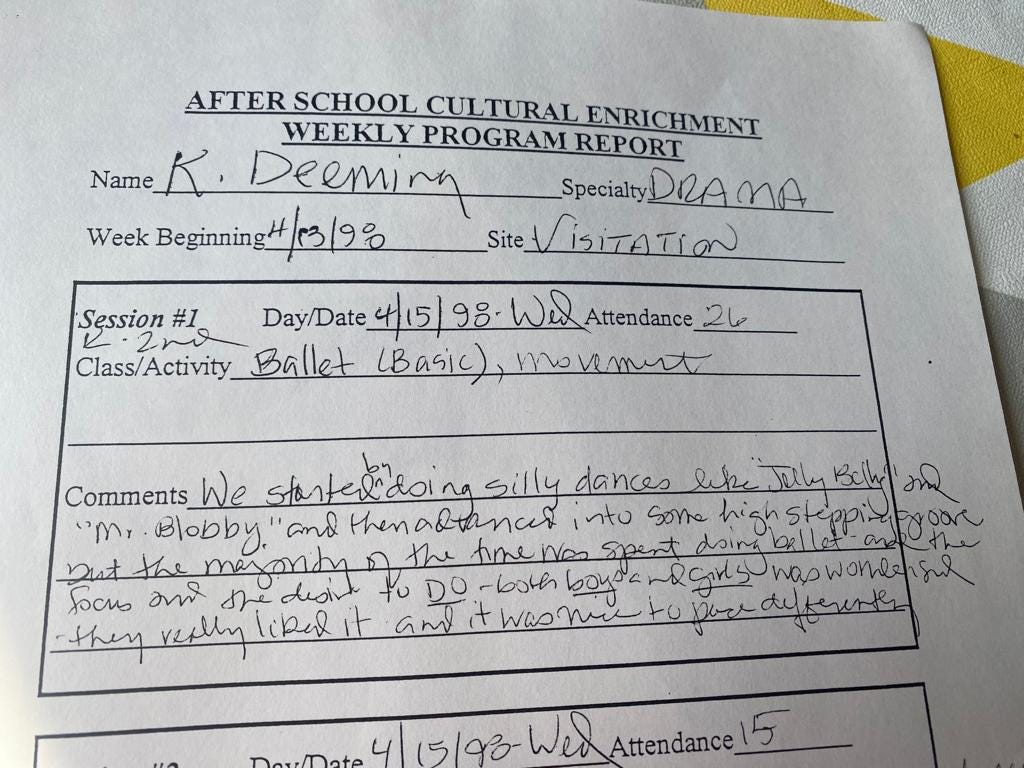 AFTER SCHOOL CULTURAL ENRICHMENT
WEEKLY PROGRAM REPORT
Name K. Deeming Specialty DRAMA
Week Beginning 4/13/98 Site VISITATION
Session #1 Day/Date 4/15/98-Wed Attendance 26
K-2nd
Class/Activity Ballet (Basic), movement
by
Comments We started doing silly dances like "Jelly Belly" and
"Mr. Blobby," and then advanced into some high stepping groove
but the majority of the time was spent doing ballet - and the
focus and the desire to DO - both boys and girls was wonderful
- they really liked it and it was nice to pace differently
Day/Date 4/15/98-Wed Attendance 15